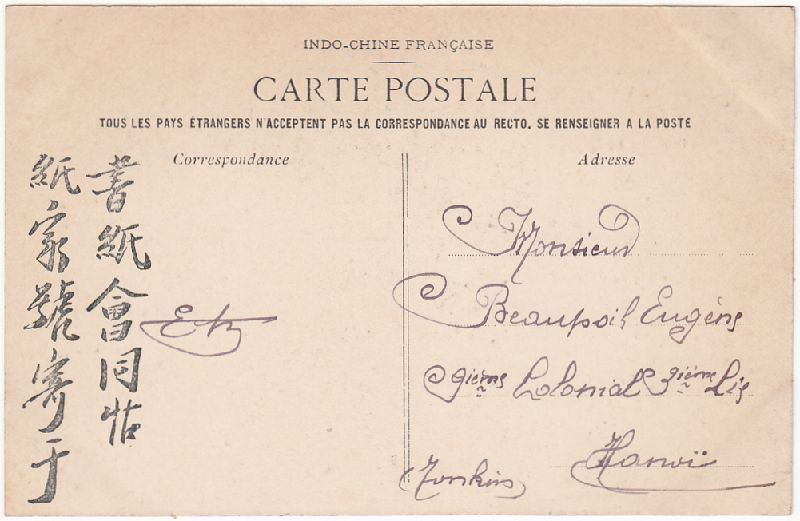 INDO-CHINE FRANÇAISE
CARTE POSTALE
TOUS LES PAYS ÉTRANGERS N'ACCEPTENT PAS LA CORRESPONDANCE AU RECTO. SE RENSEIGNER A LA POSTE
Correspondance
Adresse
書紙會同帖
紙家號寄于
Monsieur
Beaupoil Eugène
9ième Colonial 3ième Cie
Hanoï
Tonkin